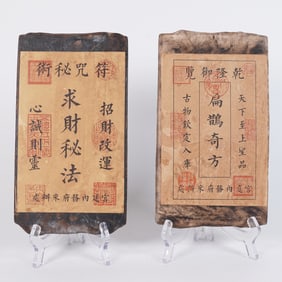 符咒秘術
招財改運
求財秘法
心誠則靈
宮廷內務府來辦處
乾隆御覽
天下至上呈品
扁鵲奇方
古物欽定入庫
宮廷內務府來辦處